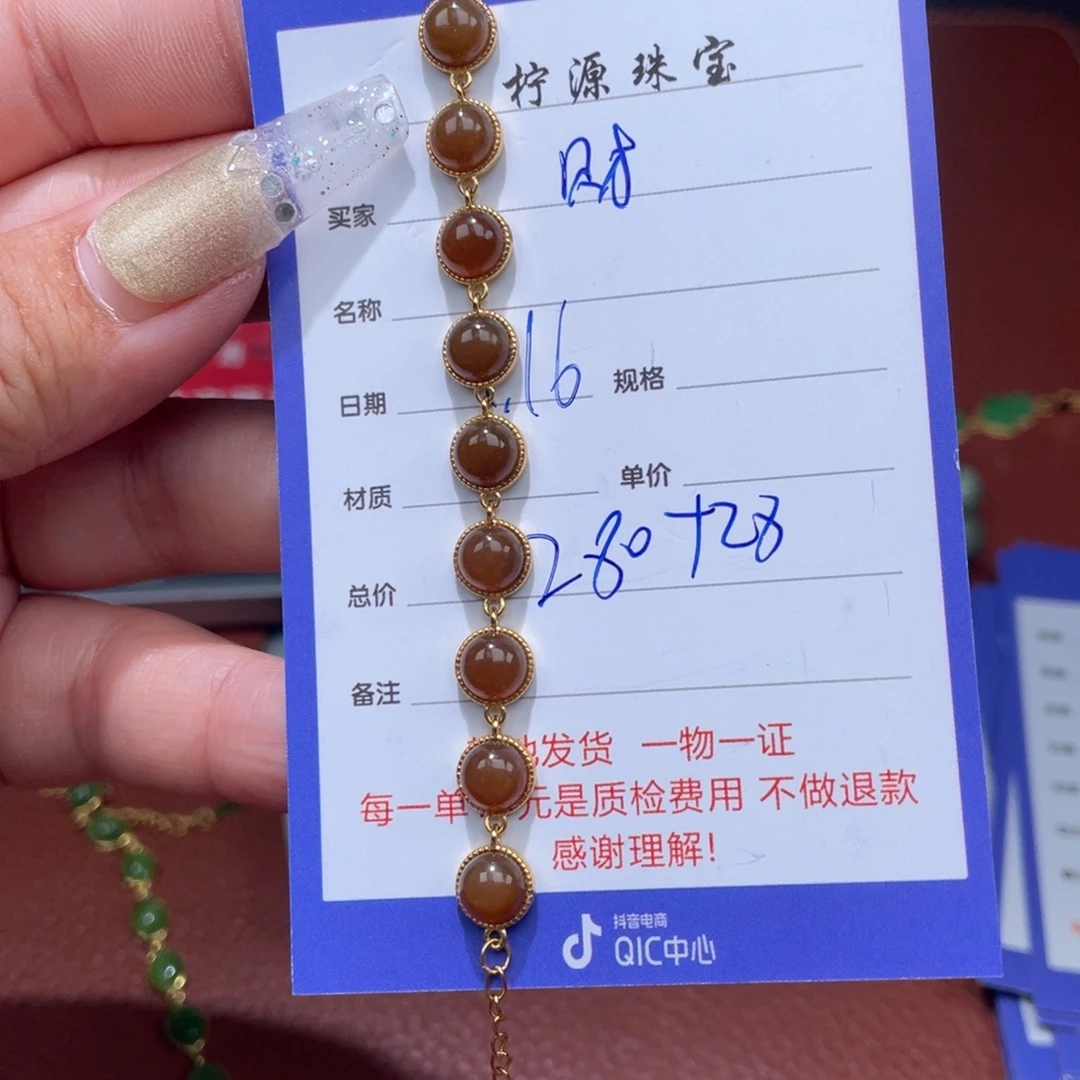 柠源珠宝
买家 财
名称
日期 .16 规格
材质 单价
总价 280+28
备注
发货 一物一证
每一单 元是质检费用 不做退款
感谢理解!
抖音电商
QIC中心